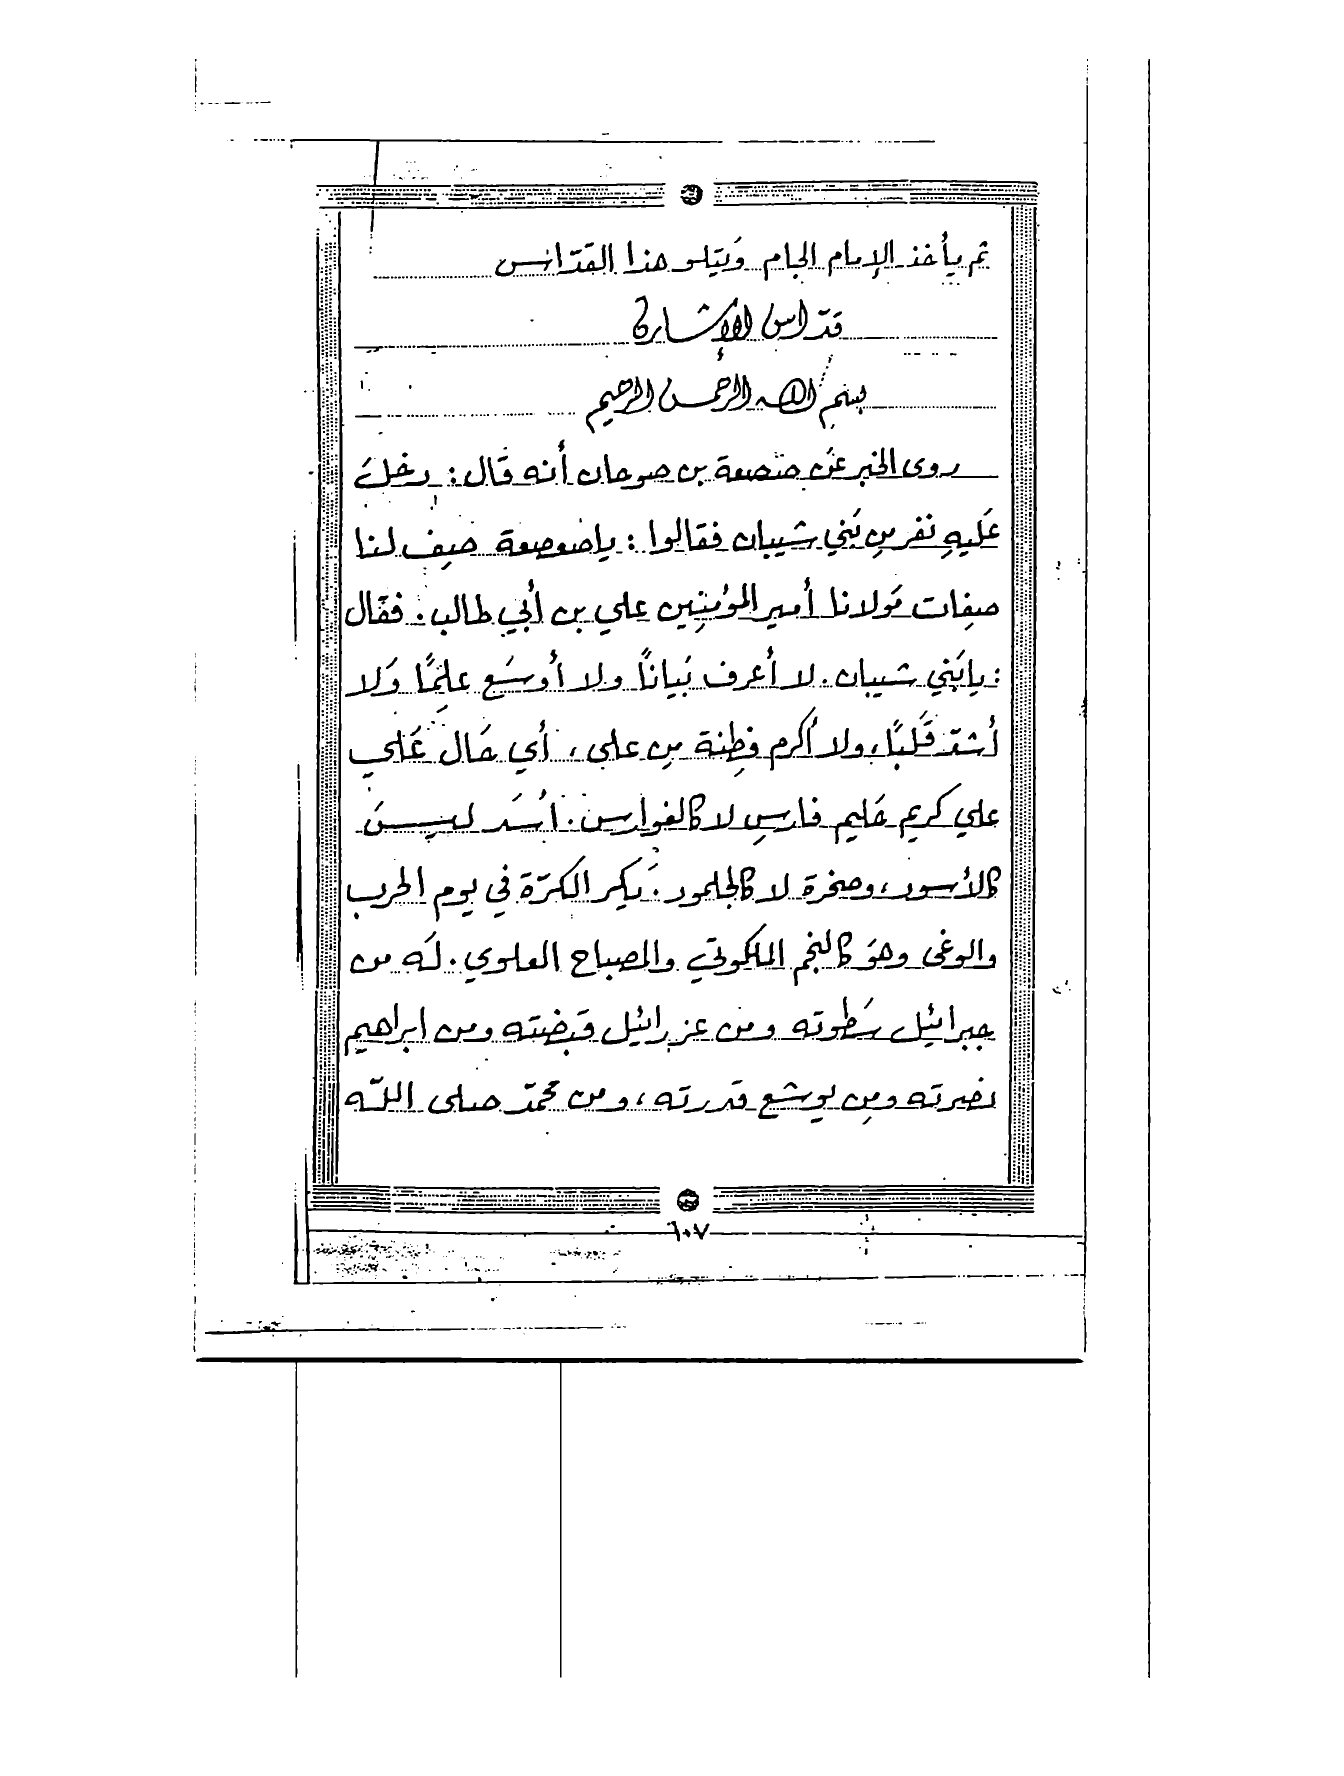 ثم يأخذ الإمام الجام وَيتلو هذا القدّاس
قدّاس الإشارة
بسم الله الرحمن الرحيم
روى الخبر عَن صعصعة بن صوحان أنه قَال : دخلَ
عَليهِ نفر مِن بَني شيبان فقالوا : ياصعصعة صِف لنا
صِفات مَولانا أمير المؤمنِين علي بن أبي طالب . فقَال
: يابَني شيبان . لا أعرف بَيانًا ولا أوسَع علِمًا وَلا
أشدّ قَلبًا، ولا أكرم فِطنة مِن علي ، أي حَال عَلي
علي كريم حَليم فارسِ لا كالفوارس . أسَد ليسَ
كالأسود، وصخرة لا كالجلمود . يَكر الكرّة في يوم الحرب
والوغى وهوَ كالنجم الملكوتي والمصباح العلوي . لَه من
جبرائيل سَطوته ومن عزرائيل قَبضته ومن ابراهيم
نضرته ومِن يوشع قدرته ، ومن محمدّ صلى اللّه
٦٠٧